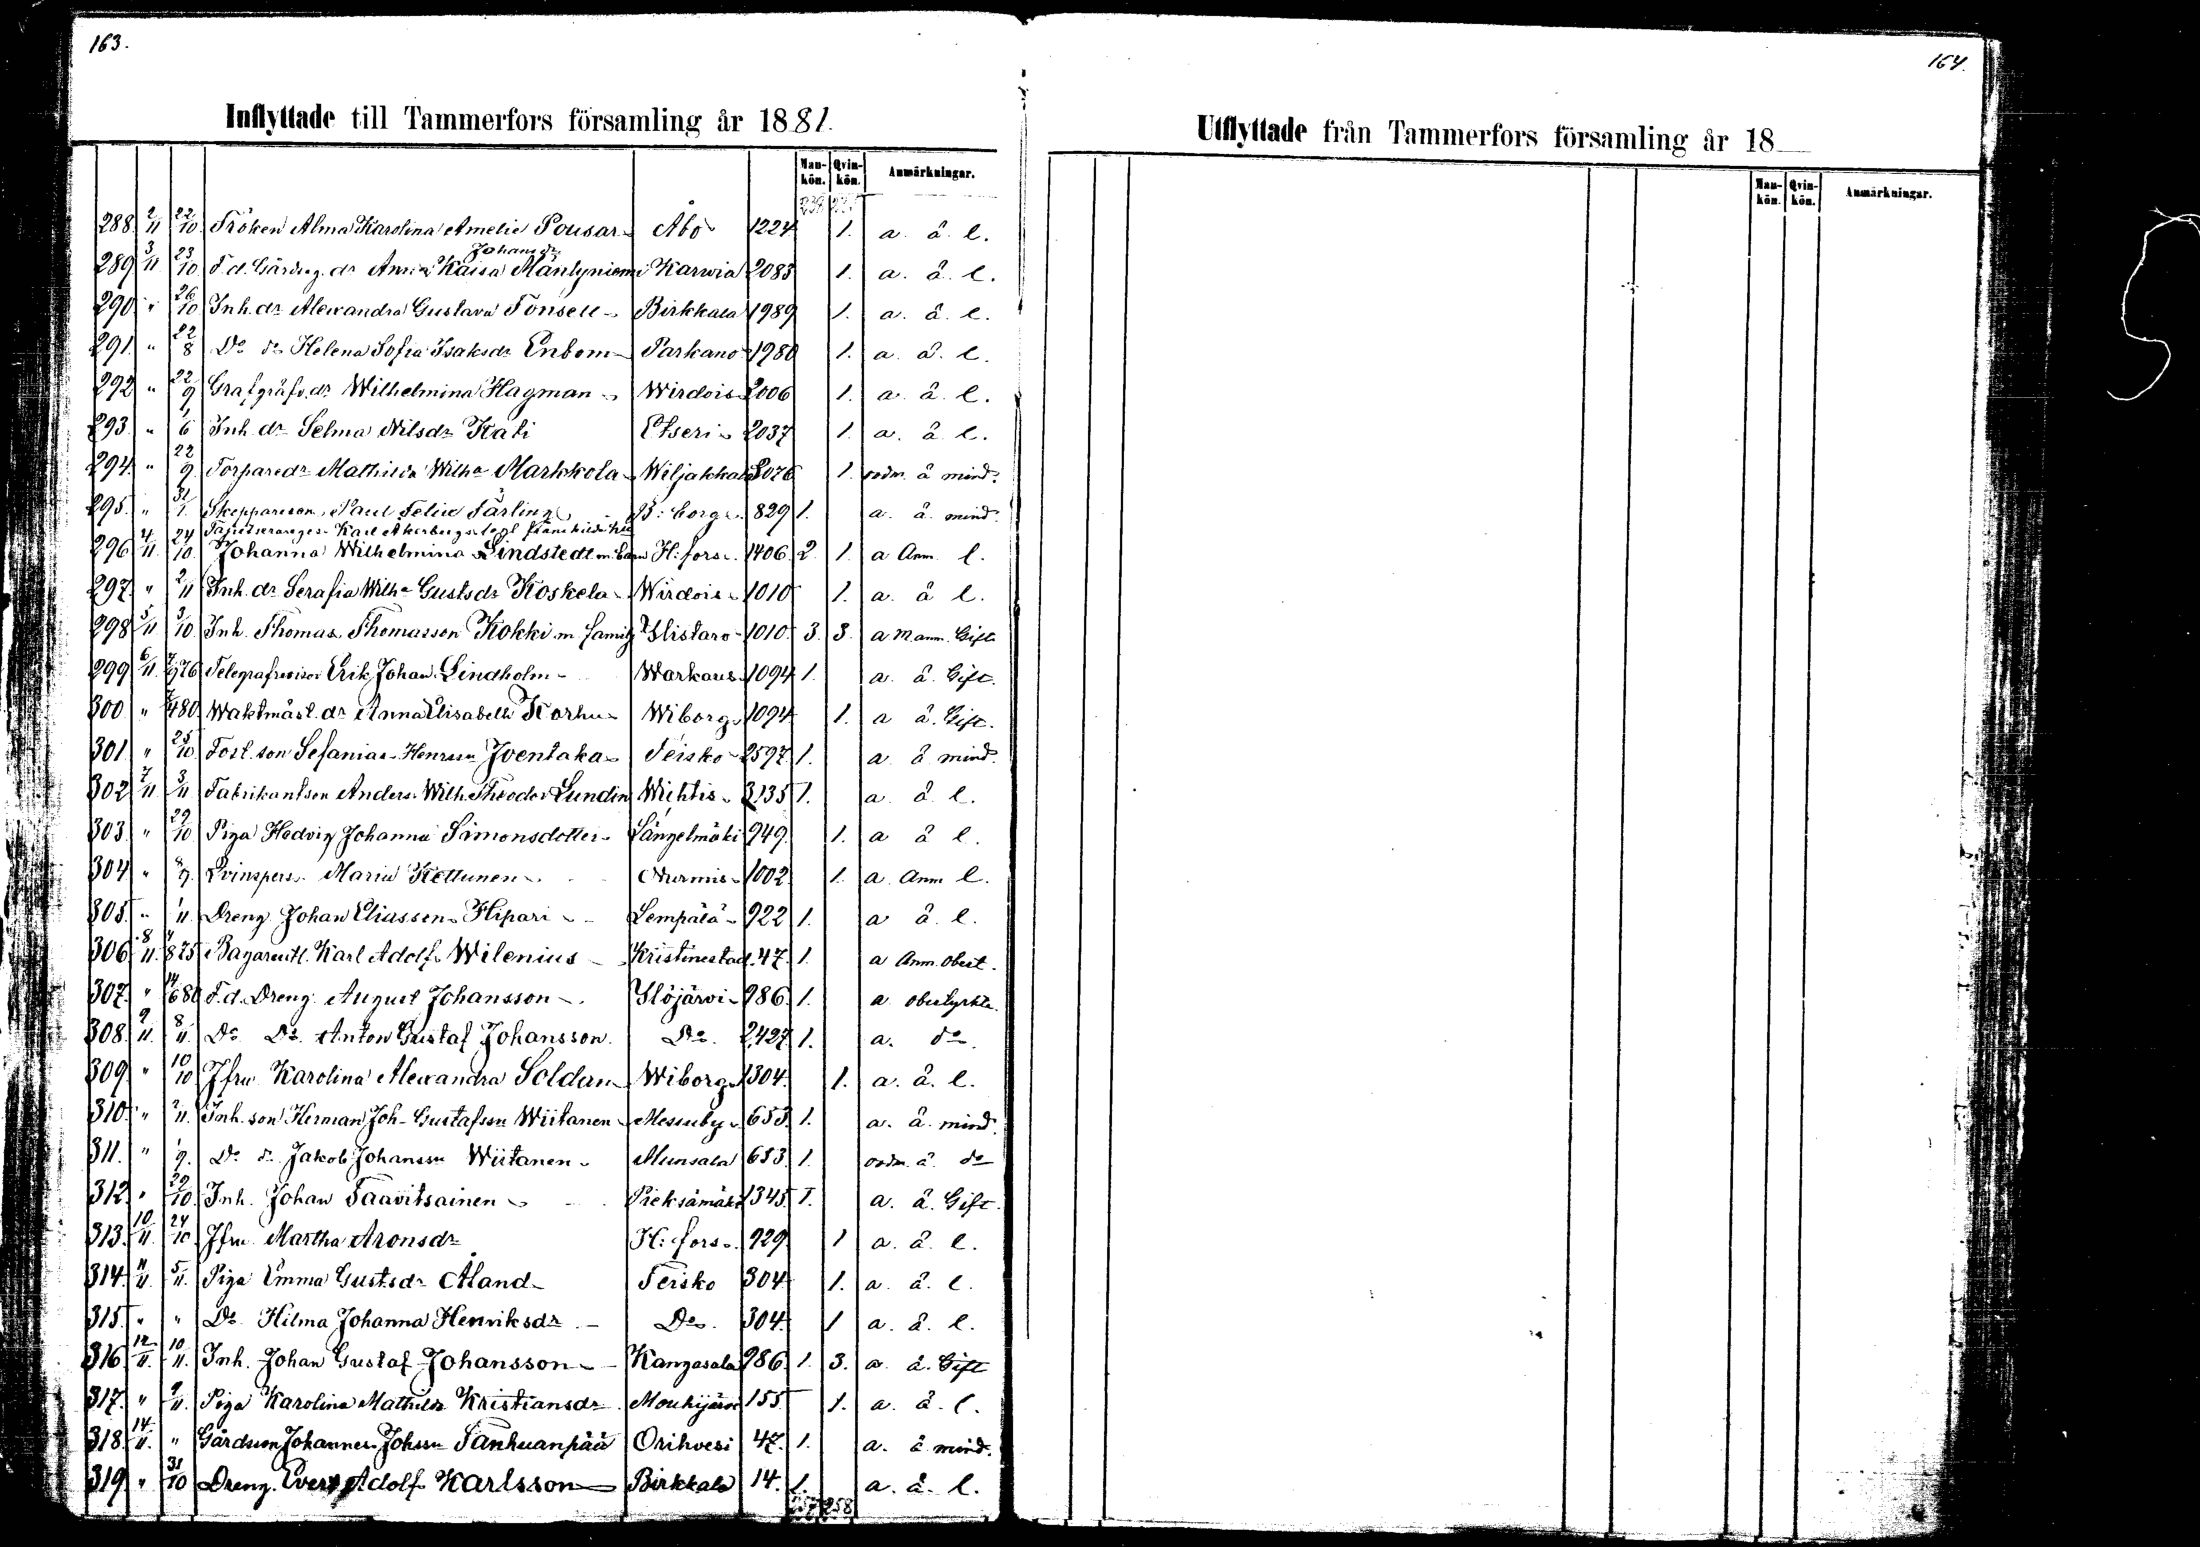 163.
Inflyttade till Tammerfors församling år 1881.
Mankön. Qvinkön. Anmärkningar.
288. 2/11 22/10 Fröken Alma Karolina Amelie Pousar Åbo 1224 1. a. å. l.
Johansdr
289 3/11 23/10 F.d. Gårdeg. dr Anna Kaisa Mäntyniemi Karvia 2083 1. a. å. l.
290 " 26/10 Inh. dr Alexandra Gustava Fonsell Birkkala 1989 1. a. å. l.
291. " 22/8 Do do Helena Sofia Isaksdr Enbom Parkano 1980 1. a. å. l.
292 " 22/9 Wilhelmina Hagman Wirdois 2006 1. a. å. l.
293. " 1/6 Inh. dr Selma Nilsdr Kati Etseri 2037 1. a. å. l.
294. " 22/9 Torparedr Mathilda Wilha Markkola Wiljakkala 3026 1. å mind.
295. " 31/1. Skepparson Paul Felix Färling B:borg 829 1. a. å mind.
Karl Åkerbergs
296 4/11 24/10 Johanna Wilhelmina Lindstedt m. barn H:fors 1406. 2. 1. a Anm. l.
297. " 2/11 Inh. dr Serafia Wilha Gustsdr Koskela Wirdois 1010 1. a. å l.
298 5/11 3/10 Inh. Thomas Thomasson Kokki m. familj Ylistaro 1010. 3. 3. a M anm. Gift
299 6/11. 7/9 76 Telegrafrevisor Erik Johan Lindholm Warkaus 1094 1. a. å. Gift.
300. " 480 Waktmäst. dr Anna Elisabeth Korhu Wiborg 1094 1. a å. Gift.
301. " 25/10 Fost. son Sefanias Henrssn Iventaka Teisko 2597. 1. a å mind.
302 7/11 3/11 Fabrikantson Anders Wilh. Theodor Lundin Wichtis 3135 1. a. å l.
303. " 29/10 Piga Hedvig Johanna Simonsdotter Längelmäki 949. 1. a å l.
304 " 9. Qvinspers. Maria Kettunen Nurmis 1002 1. a. Anm l.
305. " 1/11. Dreng Johan Eliasson Hipari Lempälä 922 1. a å. l.
306 8/11. 4/8 75 Bagaremäst. Karl Adolf Wilenius Kristinestad. 47. 1. a Anm. obest.
307. " 14/6 80 F.d. Dreng August Johansson Ylöjärvi 986. 1. a obestyrkta
308. 9/11. 8/11. Do Do Anton Gustaf Johansson. Do. 2,427. 1. a. do.
309. " 10/10 Jfru Karolina Alexandra Soldan Wiborg 1304. 1. a. å. l.
310. " 2/11. Inh. son Herman Joh. Gustafssn Wiitanen Messuby 653. 1. a. å. mind.
311. " 1/9. Do do Jakob Johanssn Wiitanen Munsala 653. 1. å. do
312. " 29/10. Inh. Johan Taavitsainen Pieksämäki 1345. 1. a. å. Gift.
313. 10/11. 24/10 Jfru Martha Aronsdr H:fors 929. 1 a. å. l.
314. 11/11. 5/11. Piga Emma Gustsdr Åland Teisko 304 1. a. å. l.
315. " " Do Hilma Johanna Henriksdr Do. 304. 1 a. å. l.
316 12/11. 10/11. Inh. Johan Gustaf Johansson Kangasala 986. 1. 3. a. å. Gift
317. " 9/11. Piga Karolina Mathilda Kristiansdr Mouhijärvi 155 1. a. å. l.
318. 14/11. " Gårdsson Johannes Johssn Tanhuanpää Orihvesi 47. 1. a. å mind.
319 " 31/10 Dreng. Evert Adolf Karlsson Birkkala 14. 1. a. å. l.
257 258
164.
Utflyttade från Tammerfors församling år 18
Mankön. Qvinkön. Anmärkningar.